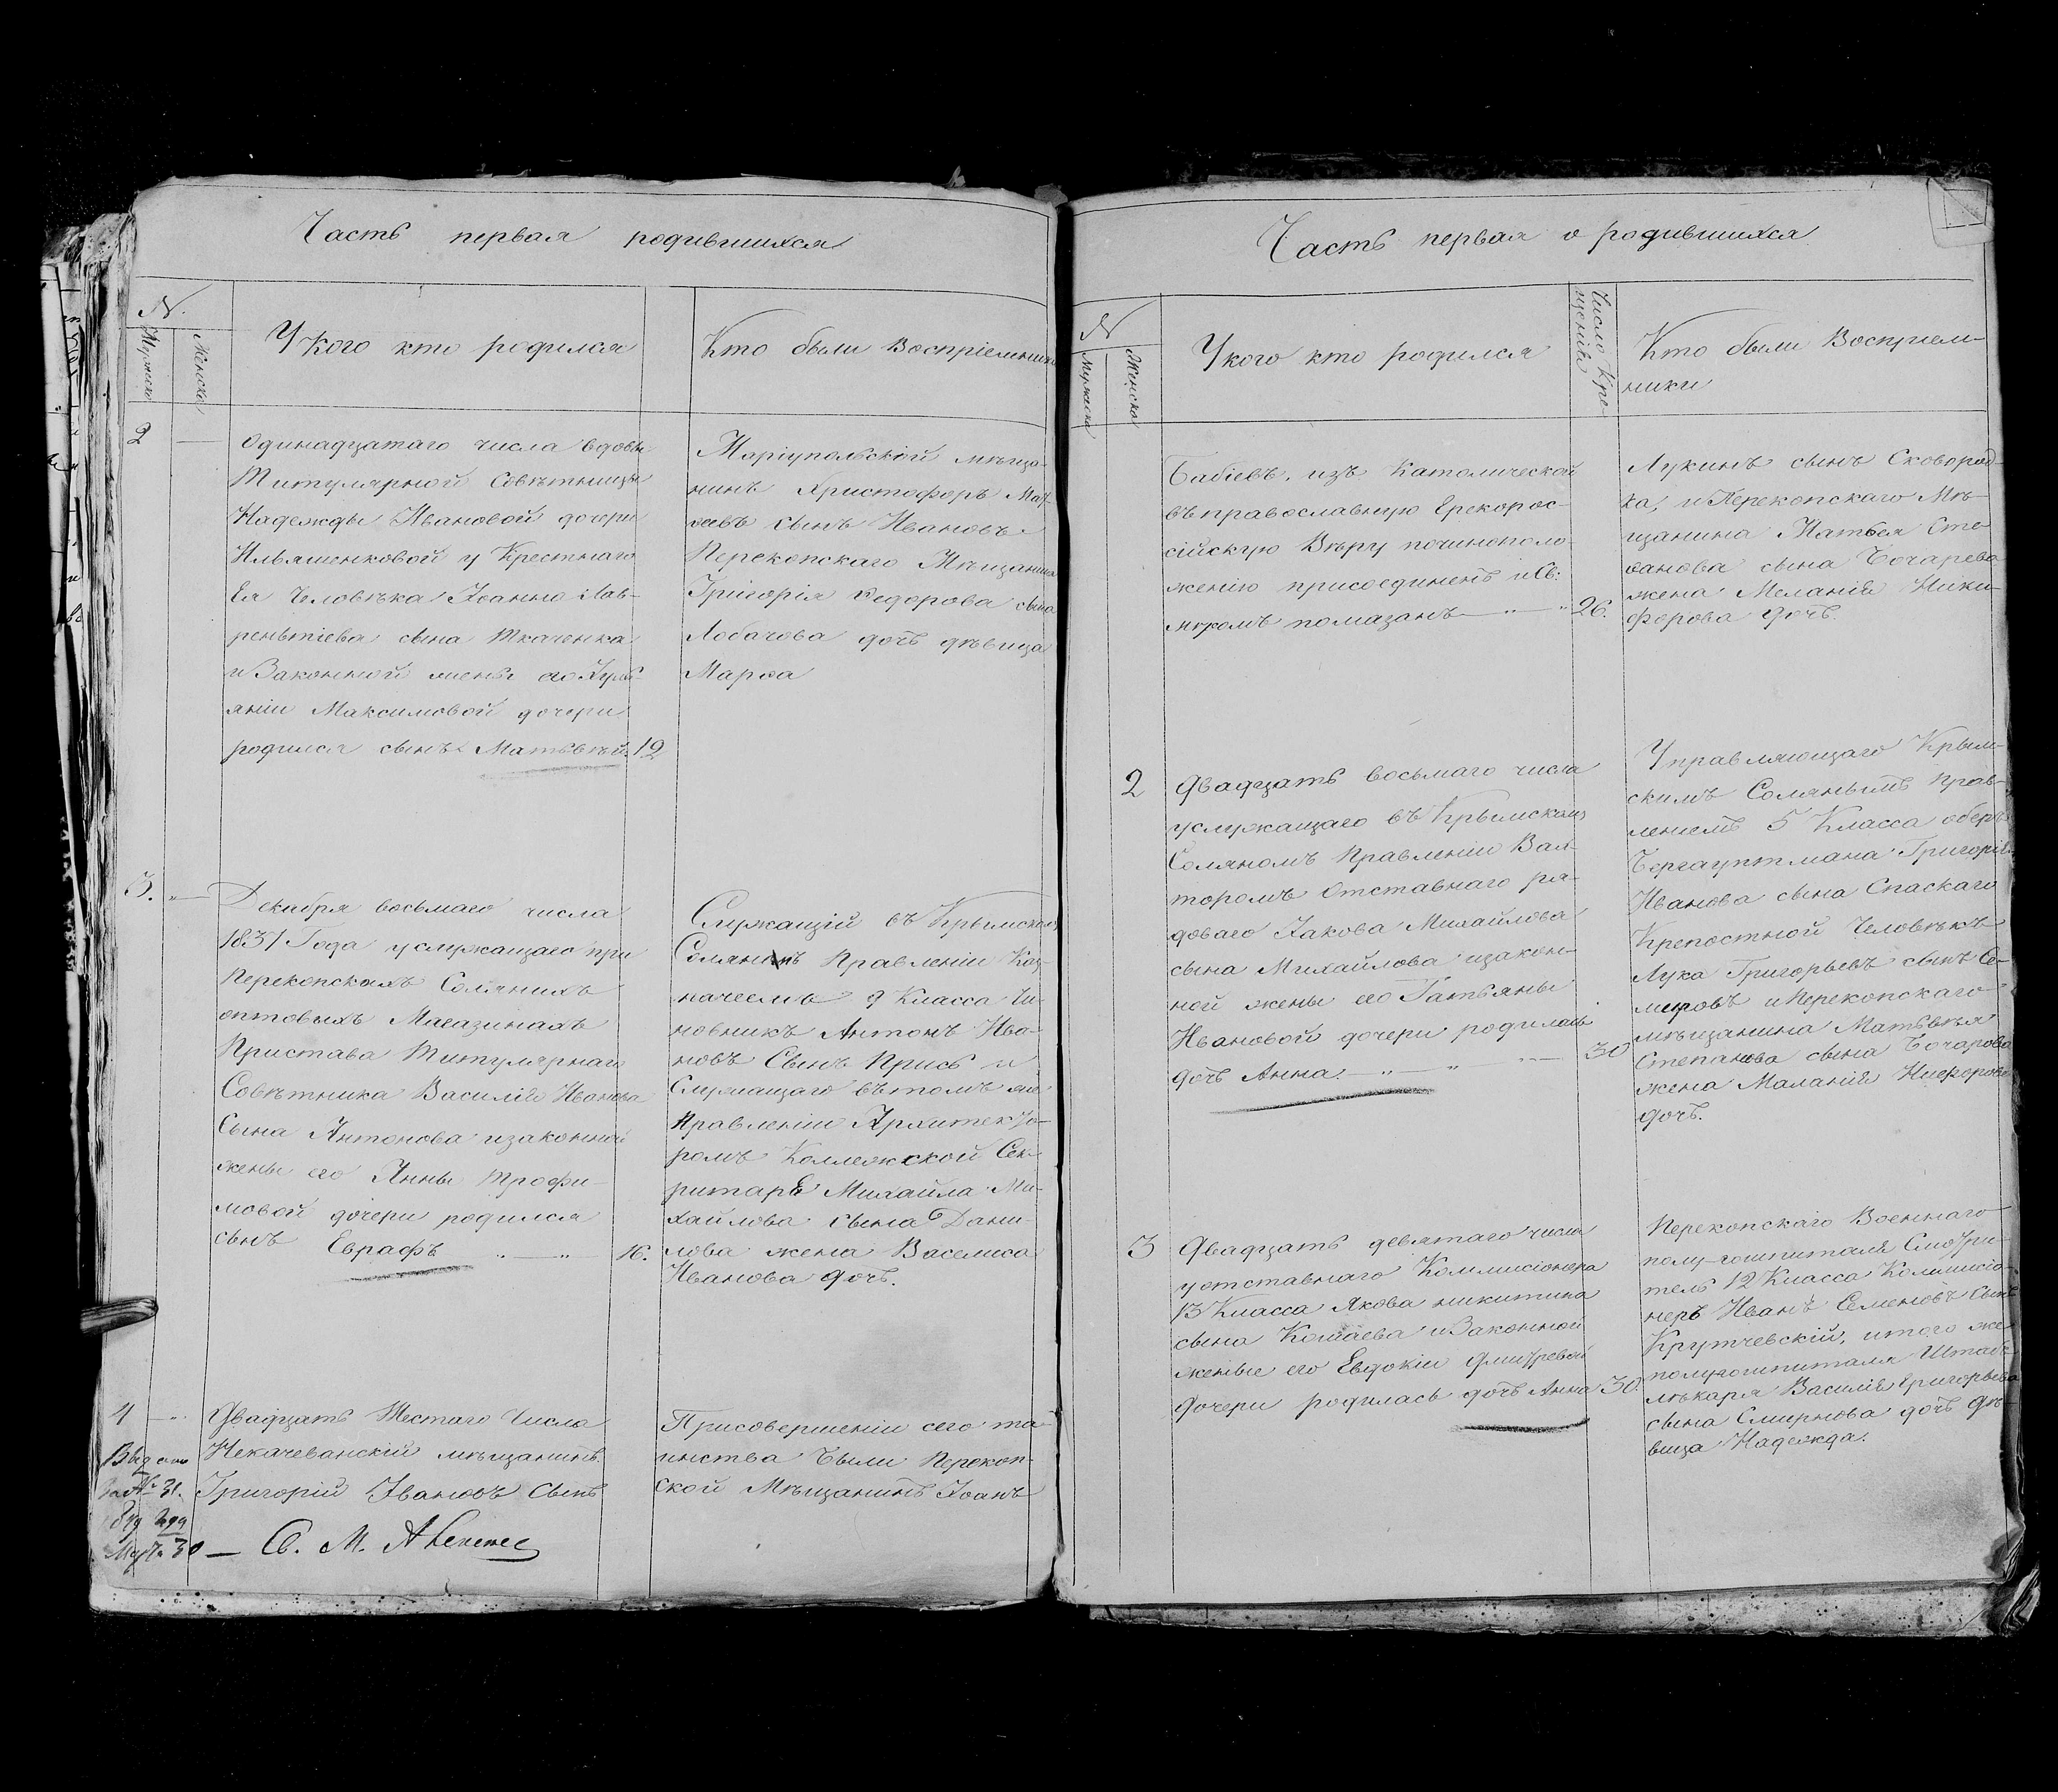 Часть первая родившихся
N.
Мужеска
Женска
У кого кто родился
Кто были Воспріемники
2
одинадцатаго числа вдовы
Титулярной Совѣтницы
Надежды Ивановой дочери
Ильяшенковой у Крестнаго
Ея Человѣка Іоанна Лав-
рентіева сына Ткаченка
и Законной жены его Ульѣ-
яніи Максимовой дочери
родился сынъ Матвѣй. 12
Маріупольскій мѣща-
нинъ Христофоръ
сынъ Ивановъ
Перекопскаго Мѣщанина
Григорія Федорова сына
Лобачова дочь дѣвица
Марѳа
3.
Декабря восьмаго числа
1831 Года услужащаго при
Перекопскахъ Соляныхъ
оптовыхъ Магазинахъ
Пристава Титулярнаго
Совѣтника Василія Иванова
Сына Антонова изаконной
жены его Анны Трофи-
мовой дочери родился
сынъ Еврафъ 16.
Служащій въ Крымскомъ
Соляномъ Правленіи Каз-
начеемъ 9 Класса Чи-
новникъ Антонъ Ива-
новъ Сынъ Присъ и
Служащаго въ томъ же
Правленіи Архитекто-
ромъ Коллежской Сек-
ритаръ Михайла Ми-
хайлова сына Дани-
лова жена Васелиса
Иванова дочь.
4
Двадцать Шестаго Числа
Некачеванскій мѣщанинъ
Григорій Ивановъ Сынъ
Выдано
за № 31.
Марта 30 — Св. М.
Присовершеніи сего та-
инства Были Перекоп-
ской Мѣщанинъ Іоанъ
Часть первая о родившихся
N
Мужеска
Женска
У кого кто родился
Число Кре-
щенія
Кто были Воспріем-
ники
Бабіевъ, изъ Католической
въ православную Грекорос-
сійскую Вѣру починополо-
женію присоединенъ и Св:
муромъ помазанъ 26.
Лукинъ сынъ Сковород-
ка, и Перекопскаго Мѣ-
щанина Матвея Сте-
ѳанова сына Бочарева
жена Меланія Ники-
форова дочь.
2
Двадцать восьмаго числа
услужащаго въ Крымскомъ
Соляномъ Правленіи Вах-
торомъ Отставнаго ря-
доваго Іакова Михайлова
сына Михайлова изакон-
ной жены его Татьяны
Ивановой дочери родилась
дочь Анна. 30
Управляющаго Крым-
скимъ Солянымъ Прав-
леніемъ 5 Класса оберъ
Бергауптмана Григорія
Иванова сына Спаскаго
Крепостной Человѣкъ
Лука Григорьевъ сынъ Се-
меровъ и Перекопскаго
мѣщанина Матвѣя
Степанова сына Бочарова
жена Маланія Ниферова
дочь.
3
Двадцать девятаго числа
уотставнаго Коммисіонера
13 Класса Якова никитина
сына Комаева и Законной
жены его Евдокіи Дмитревой
дочери родилась дочь Анна 30.
Перекопскаго Военнаго
полу-гошпиталя Смотри-
тель 12 Класса Коммисіо-
неръ Иванъ Семеновъ Сынъ
Крутчевскій, итого же
полугошпиталя Штабъ
лѣкаря Василія Григорьева
сына Смирнова дочь дѣ-
вица Надежда.